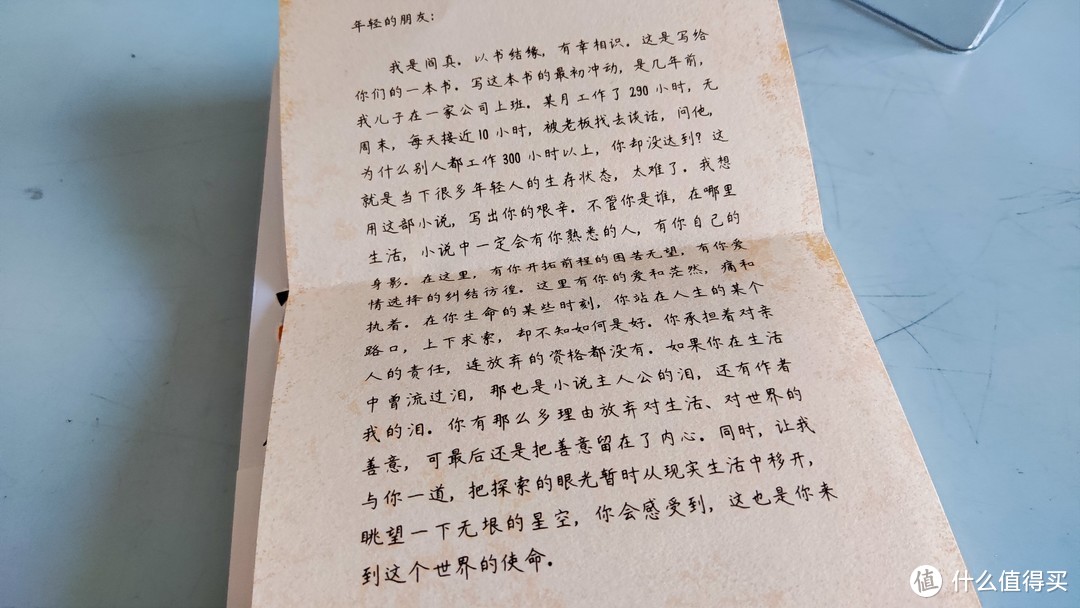 年轻的朋友:
我是间真.以书结缘,有幸相识.这是写给
你们的一本书.写这本书的最初冲动,是几年前,
我儿子在一家公司上班.某月工作了290小时,无
周末,每天接近10小时,被老板找去谈话,问他,
为什么别人都工作300小时以上,你却没达到?这
就是当下很多年轻人的生存状态,太难了.我想
用这部小说,写出你的艰辛.不管你是谁,在哪里
生活,小说中一定会有你熟悉的人,有你自己的
身影.在这里,有你开拓前程的困苦无望,有你爱
情选择的纠结彷徨.这里有你的爱和茫然,痛和
执着.在你生命的某些时刻,你站在人生的某个
路口,上下求索,却不知如何是好.你承担着对亲
人的责任,连放弃的资格都没有.如果你在生活
中曾流过泪,那也是小说主人公的泪,还有作者
我的泪.你有那么多理由放弃对生活、对世界的
善意,可最后还是把善意留在了内心.同时,让我
与你一道,把探索的眼光暂时从现实生活中移开,
眺望一下无垠的星空,你会感受到,这也是你来
到这个世界的使命.
值 什么值得买